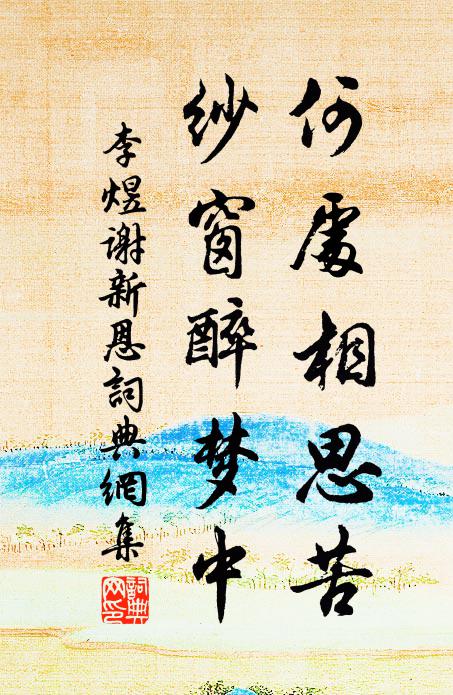 何處相思苦
紗窗醉梦中
李煜谢新恩詞典網集
詞典网印